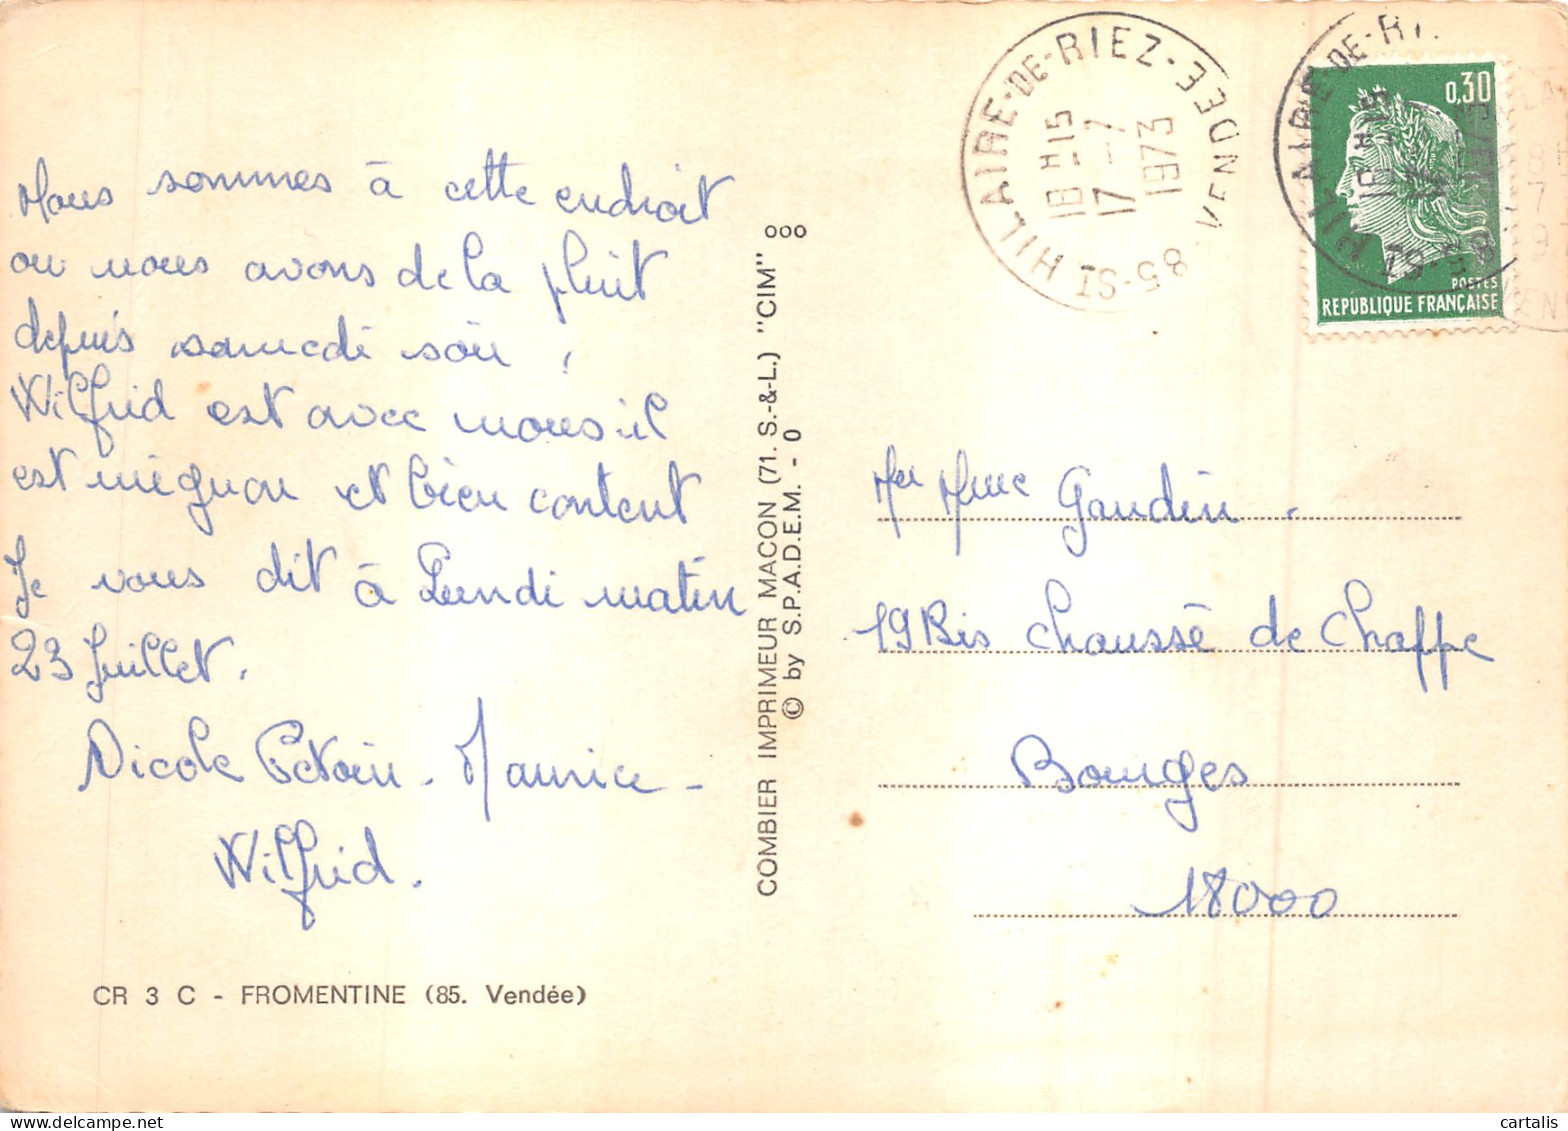 Nous sommes à cette endroit
ou nous avons de la pluit
depuis samedi soir !
Wilfrid est avec nous il
est mignon et bien content
Je vous dit à Lundi matin
23 Juillet.
Nicole Maurice -
Wilfrid.
CR 3 C - FROMENTINE (85. Vendée)
COMBIER IMPRIMEUR MACON (71. S.-&-L.) "CIM" ooo
© by S.P.A.D.E.M. - 0
HILAIRE-DE-RIEZ - VENDEE
18 H -15
17 - 7
1973
85-ST
0,30
POSTES
REPUBLIQUE FRANÇAISE
Mr Mme Gaudin.
19 Bis Chaussé de Chappe
Bourges
18000
cartalis